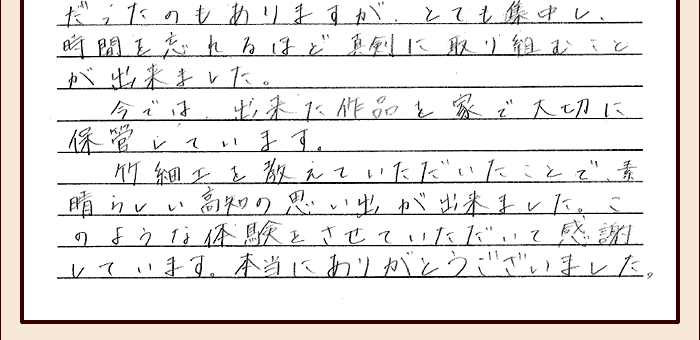 だったのもありますが、とても集中し、
時間を忘れるほど真剣に取り組むこと
が出来ました。
今では、出来た作品を家で大切に
保管しています。
竹細工を教えていただいたことで、素
晴らしい高知の思い出が出来ました。こ
のような体験をさせていただいて感謝
しています。本当にありがとうございました。